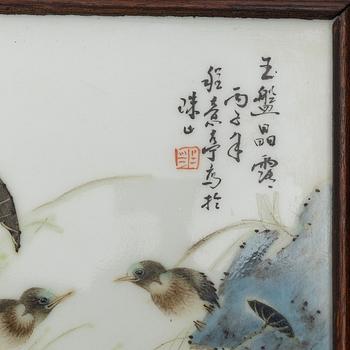 玉盤晶露
丙子年
程意亭寫於
珠山